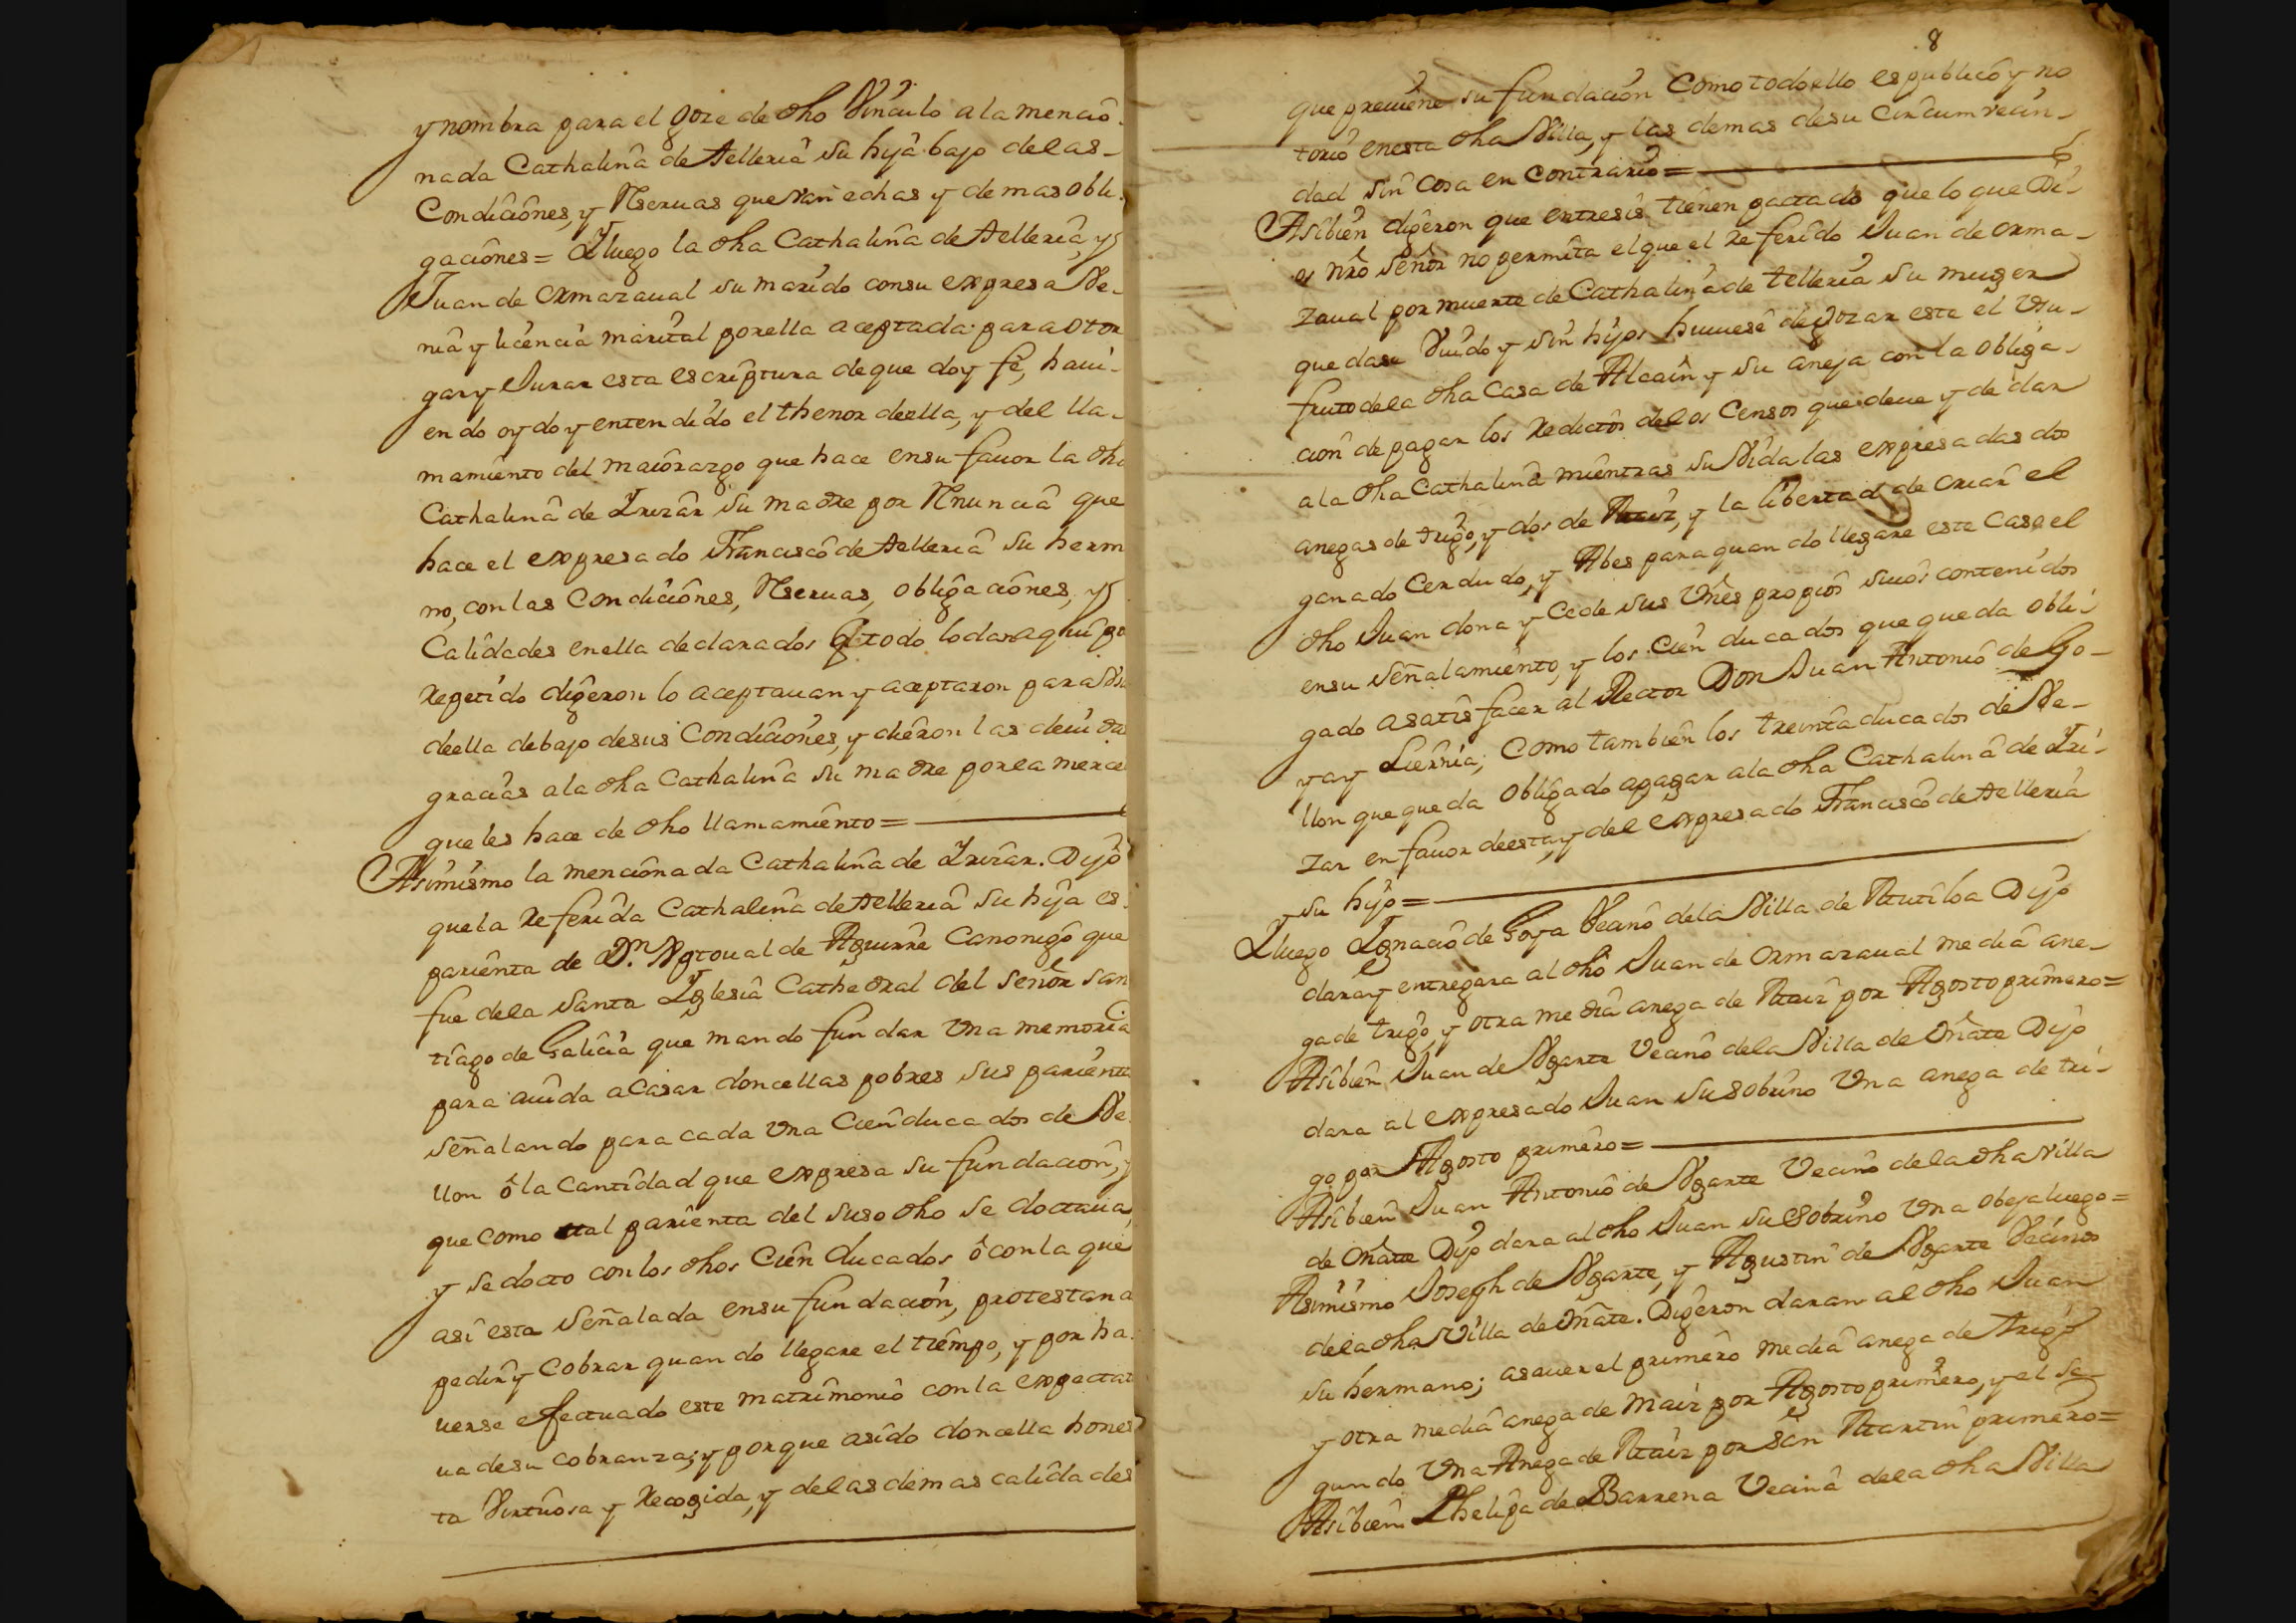 y nombra para el goze de dho Vinculo a la mencio-
nada Cathalina de Telleria su hija bajo de las-
Condiciones, y Reseruas que van echas y demas obli-
gaciones= Y luego la dha Cathalina de Telleria, y
Juan de Ormazaual su marido con su expresa Ve-
nia y licencia marital por ella aceptada para otor
gar y Jurar esta escriptura de que doy fe, haui-
endo oydo y entendido el thenor de ella, y del lla-
mamiento del maiorazgo que hace en su fauor la dha
Cathalina de Irizar su madre por Renuncia que
hace el expresado Francisco de Telleria su herm
no, con las Condiciones, Reseruas, obligaciones, y
Calidades en ella declarados q todo lo dan aqui po
repetido digeron lo aceptauan y aceptaron para Vsa
de ella debajo de sus Condiciones, y dieron las deuidas
gracias a la dha Cathalina su madre por la merce
que les hace de dho llamamiento=
Asimismo la mencionada Cathalina de Irizar. Dijo
que la referida Cathalina de Telleria su hija es-
parienta de Dn. Xptoual de Aguirre Canonigo que
fue de la Santa Iglesia Cathedral del Señor San
tiago de Galicia que mando fundar Vna memoria
para auida a Casar doncellas pobres sus parienta
señalando para cada Vna Cien ducados de Ve-
llon ô la Cantidad que expresa su fundacion, y
que como tal parienta del suso dho se doctaua,
y se docto con los dhos Cien ducados ô con la que
asi esta señalada en su fundacion, protestana
pedir y Cobrar quando llegare el tiempo, y por ha-
uerse efectuado este matrimonio con la expectati
ua de su cobranza; y porque asido doncella hones
ta Virtuosa y Recogida, y de las demas calidades
8
que preuiene su fundacion Como todo ello es publico y no
torio en esta dha Villa, y las demas de su Circumvecin-
dad sin Cosa en Contrario=
Asibien digeron que entre si tienen pactado que lo que Di-
os nro Señor no permita el que el referido Juan de Orma-
zaual por muerte de Cathalina de Telleria su muger
quedase Viudo y sin hijos huuese de gozar esta el Vsu-
fruto de la dha Casa de Alcain y su aneja con la obliga-
cion de pagar los Redictos de los Censos que deue y de dar
a la dha Cathalina mientras su Vida las expresadas dos
anegas de trigo, y dos de Maiz, y la libertad de Criar el
ganado Cerdudo, y Abes para quando llegare este Caso el
dho Juan dona y Cede sus Vnes propios suios contenidos
en su señalamiento, y los Cien ducados que queda obli-
gado a satisfacer al Rector Don Juan Antonio de Go-
yay Liernia; Como tambien los treinta ducados de Ve-
llon que queda obligado apagar a la dha Cathalina de Iri-
zar en fauor de esta, y del expresado Francisco de Telleria
su hijo=
Y luego Ignacio de Goya Vecino de la Villa de Mutiloa Dijo
dara y entregara al dho Juan de Ormazaual media ane-
ga de trigo, y otra media anega de Maiz por Agosto primero=
Asibien Juan de Vgarte Vecino de la Villa de Oñate Dijo
dara al expresado Juan su sobrino Vna anega de tri-
go por Agosto primero=
Asibien Juan Antonio de Vgarte Vecino de la dha Villa
de Oñate Dijo dara al dho Juan su Sobrino Vna obeja luego=
Asimismo Joseph de Vgarte, y Agustin de Vgarte Vecinos
de la dha Villa de Oñate. Digeron daran al dho Juan
su hermano; asauer el primero media anega de trigo
y otra media anega de Maiz por Agosto primero, y el se-
gundo Vna Anega de Maiz por San Martin primero=
Asibien Phelipa de Barrena Vecina de la dha Villa